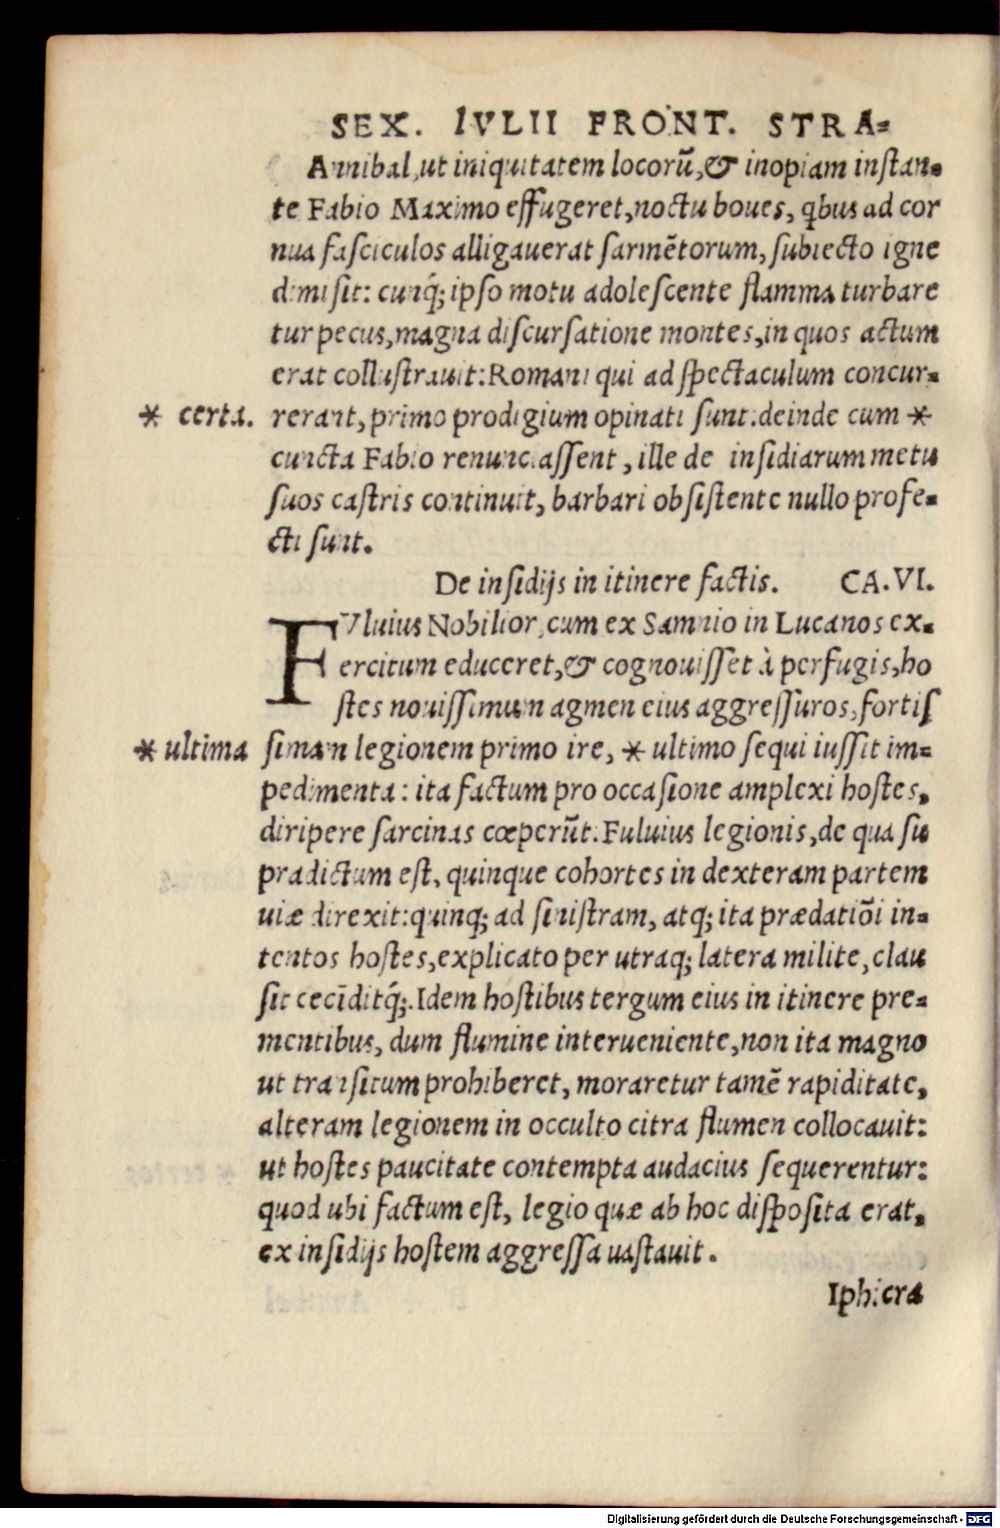 SEX. IVLII FRONT. STRA-
Annibal, ut iniquitatem locorũ, & inopiam instan-
te Fabio Maximo effugeret, noctu boues, qbus ad cor
nua fasciculos alligauerat sarmẽtorum, subiecto igne
dimisit: cunq́; ipso motu adolescente flamma turbare
tur pecus, magna discursatione montes, in quos actum
erat collustrauit: Romani qui ad spectaculum concur-
* certa. rerant, primo prodigium opinati sunt: deinde cum *
cuncta Fabio renunc.assent, ille de insidiarum metu
suos castris continuit, barbari obsistente nullo profe-
cti sunt.
De insidijs in itinere factis. CA. VI.
FVluius Nobilior, cum ex Samnio in Lucanos ex-
ercitum educeret, & cognouisset à perfugis, ho
stes nouissimum agmen eius aggressuros, fortis
* ultima simam legionem primo ire, * ultimo sequi iussit im-
pedimenta: ita factum pro occasione amplexi hostes,
diripere sarcinas cœperũt. Fuluius legionis, de qua su
pradictum est, quinque cohortes in dexteram partem
uiæ direxit: quinq; ad sinistram, atq; ita prædatiõi in-
tentos hostes, explicato per utraq; latera milite, clau
sit cecĩditq́;. Idem hostibus tergum eius in itinere pre-
mentibus, dum flumine interueniente, non ita magno
ut transitum prohiberet, moraretur tamẽ rapiditate,
alteram legionem in occulto citra flumen collocauit:
ut hostes paucitate contempta audacius sequerentur:
quod ubi factum est, legio quæ ab hoc disposita erat,
ex insidijs hostem aggressa uastauit.
Iphicra
Digitalisierung gefördert durch die Deutsche Forschungsgemeinschaft - DFG